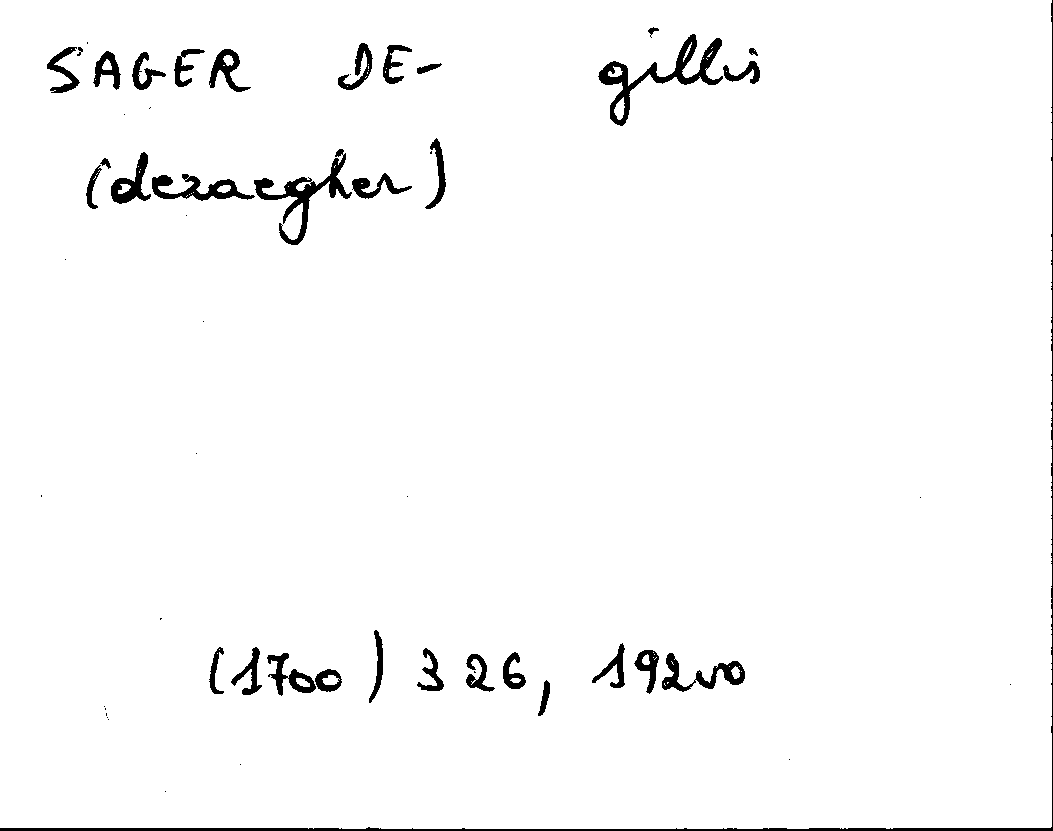 SAGER DE- gillis
(dezaegher)
(1700) 326, 192vo